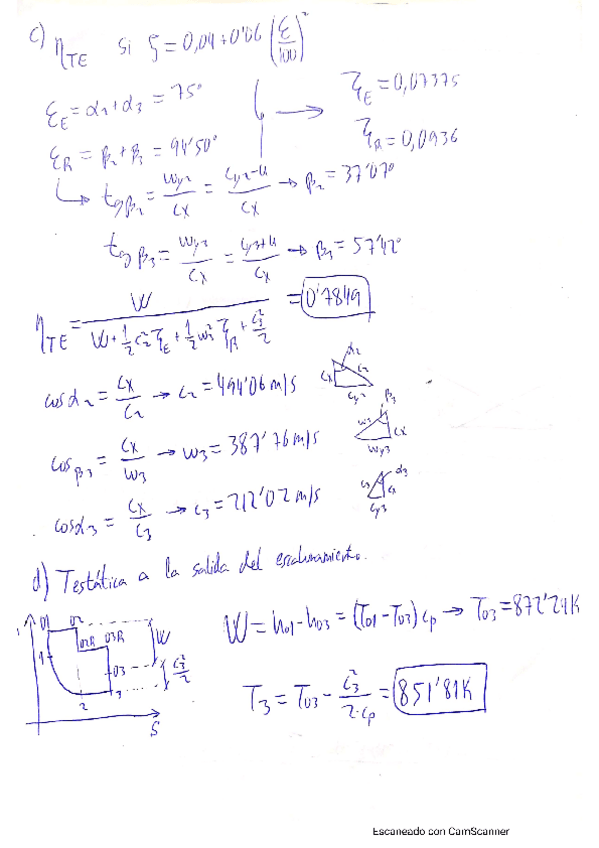 c) η_TE si ζ = 0,04 + 0'06 (ε/100)²
ε_E = α₂ + α₃ = 75°
→ ζ_E = 0,07375
ε_R = β₂ + β₃ = 94'50°
ζ_R = 0,0936
→ tg β₂ = Wy₂/Cx = (Cy₂ - u)/Cx → β₂ = 37'07°
tg β₃ = Wy₂/Cx = (Cy₃ + u)/Cx → β₃ = 57'42°
η_TE = W / (W + ½ C₂² ζ_E + ½ W₃² ζ_R + C₃²/2) = 0'7849
cos α₂ = Cx/C₂ → C₂ = 494'06 m/s
α₂ Cx C₂ Cy₂
cos β₃ = Cx/W₃ → W₃ = 387'76 m/s
β₃ W₃ Cx Wy₃
cos α₃ = Cx/C₃ → C₃ = 212'02 m/s
α₃ C₃ Cx Cy₃
d) Testática a la salida del escalonamiento.
01 02 02R 03R W 03 C₃²/2 1 2 3 S
W = h₀₁ - h₀₃ = (T₀₁ - T₀₃) cp → T₀₃ = 872'24K
T₃ = T₀₃ - C₃²/(2·cp) = 851'81K
Escaneado con CamScanner